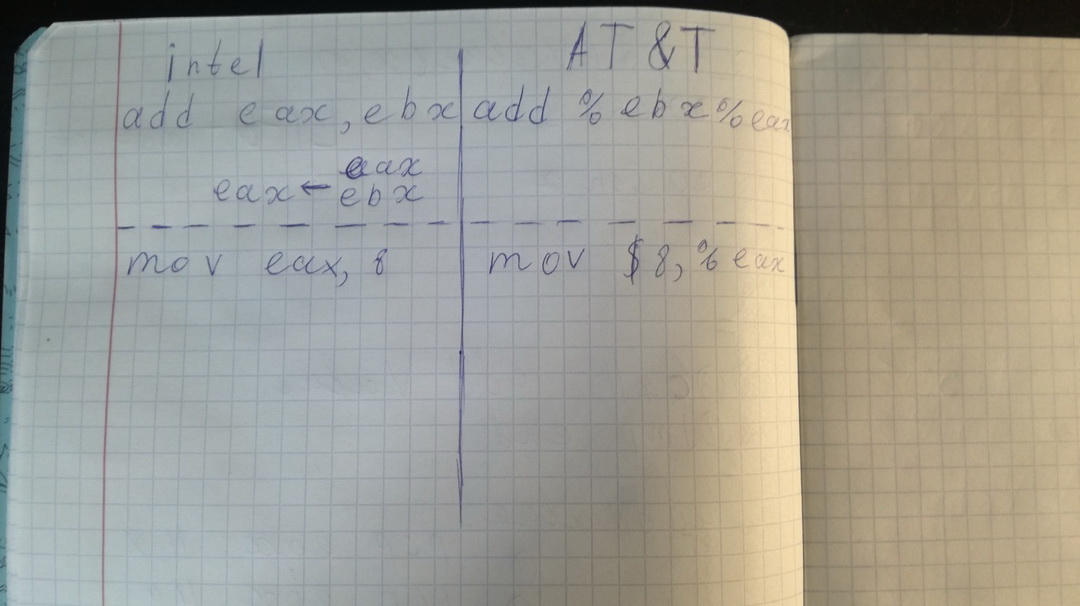 intel
AT&T
add eax, ebx
add % ebx % eax
eax
eax ← ebx
mov eax, 8
mov $8, % eax